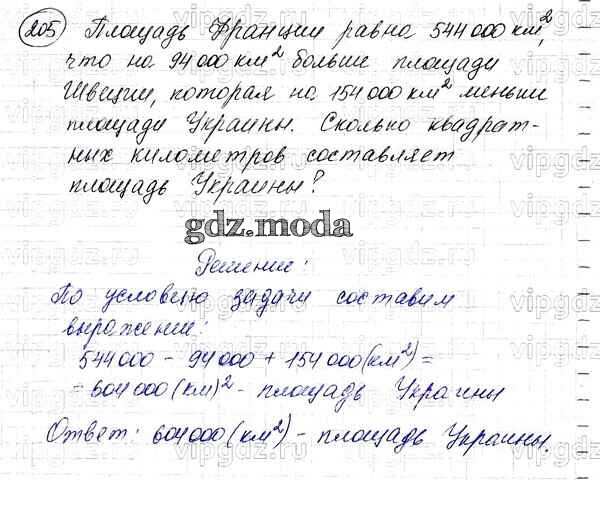 205 Площадь Франции равна 544 000 км²,
что на 94 000 км² больше площади
Швеции, которая на 154 000 км² меньше
площади Украины. Сколько квадрат-
ных километров составляет
площадь Украины?
gdz.moda
Решение:
По условию задачи составим
выражение:
544 000 - 94 000 + 154 000 (км²) =
= 604 000 (км)² - площадь Украины
Ответ: 604 000 (км²) - площадь Украины.